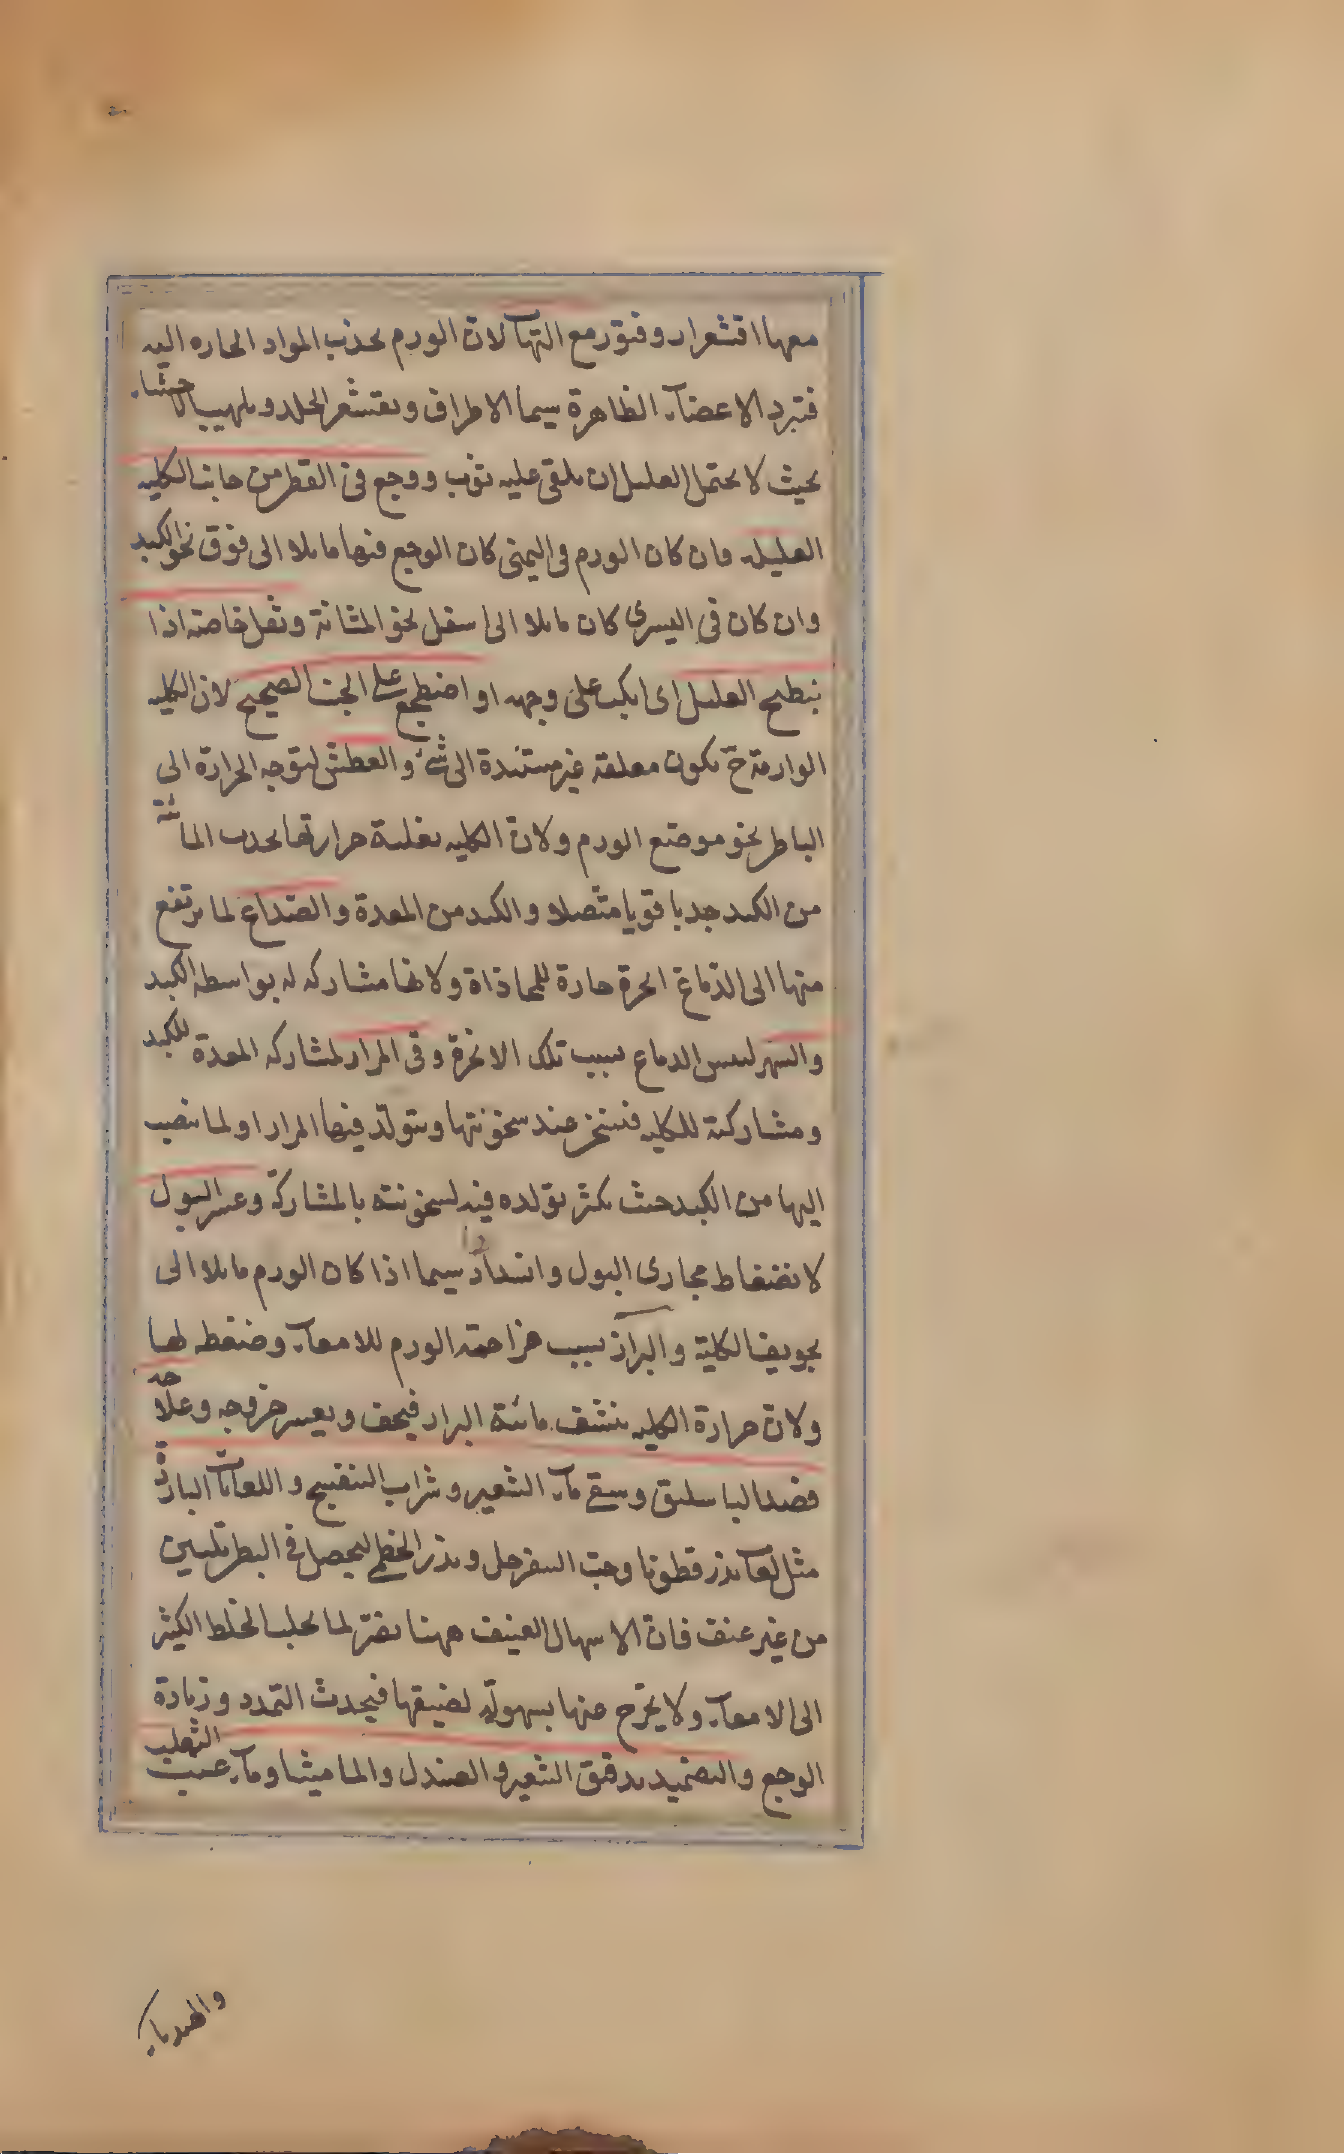 معها اقشعرار وفتور مع التهاب لان الورم يجذب المواد الحاره اليه
فتبرد الاعضاء الظاهرة سيما الاطراف ويقشعر الجلد ويلهب الاحشاء
بحيث لا يحتمل العليل ان يلقى عليه ثوب ووجع فى القطن من جانب الكليه
العليله وان كان الورم فى اليمنى كان الوجع فيها مايلا الى فوق نحو الكبد
وان كان فى اليسرى كان مايلا الى اسفل نحو المثانة وثقل خاصة اذا
ينبطح العليل اى انكب على وجهه او اضطجع على الجنب الصحيح لان الكليه
الوارمة ح تكون معلقه غير مستندة الى شئ والعطش لتوجه الحرارة الى
الباطن نحو موضع الورم ولان الكليه بغلبة حرارتها تجذب المائية
من الكبد جذبا قويا متصلا والكبد من المعدة والصداع لما يرتفع
منها الى الدماغ ابخرة حارة للمحاذاة ولانها مشاركه له بواسطه الكبد
والسهر ليبس الدماغ بسبب تلك الابخرة وقى المرار لمشاركه المعدة للكبد
ومشاركة للكليه فتسخن عند سخونتها ويتولد فيها المرار او لما ينصب
اليها من الكبد حيث يكثر تولده فيه لسخونته بالمشاركة وعسر البول
لانضغاط مجارى البول وانسدادها سيما اذا كان الورم مايلا الى
تجويف الكلية والبراز بسبب مزاحمة الورم للامعاء وضغطه لها
ولان حرارة الكليه ينشف مائية البراز فيجف ويعسر خروجه وعلاجه
فصد الباسليق وسقى ماء الشعير وشراب البنفسج واللعابات الباردة
مثل لعاب بذر قطونا وحب السفرجل وبذر الخطمى ليحصل فى البطن تليين
من غير عنف فان الاسهال العنيف ههنا يضر لما يجلب الخلط الكثير
الى الامعاء ولا يخرج منها بسهولة لضيقها فيحدث التمدد وزيادة
الوجع والتضميد بدقيق الشعير والصندل والماميثا وماء عنب الثعلب
والهندباء